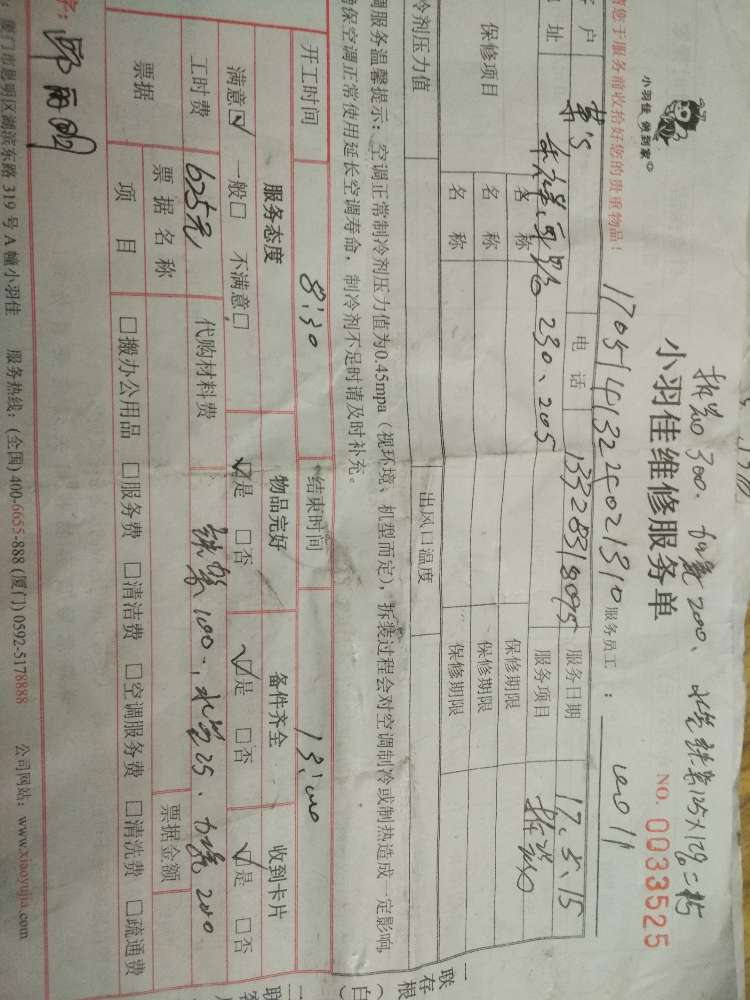 小羽佳 做到家
拆装300、加氨200、水管铁架125×1.29二档
小羽佳维修服务单
NO. 0033525
您于服务前收拾好您的贵重物品！
170514132240021310
服务员工：
户
电话
13328318095
服务日期
17.5.15
址
230、205
服务项目
拆装
保修项目
名称
保修期限
名称
保修期限
名称
保修期限
冷剂压力值
出风口温度
调服务温馨提示：空调正常制冷剂压力值为0.45mpa（视环境、机型而定），拆装过程会对空调制冷或制热造成一定影响，
确保空调正常使用延长空调寿命，制冷剂不足时请及时补充。
开工时间
8:30
结束时间
13:00
服务态度
物品完好
备件齐全
收到卡片
满意☑ 一般□ 不满意□
☑是 □否
☑是 □否
☑是 □否
工时费
625元
代购材料费
铁架100、水管25、加氨200
票据
票据名称
票据金额
项目
□搬办公用品 □服务费 □清洁费 □空调服务费 □清洗费 □疏通费
厦门市思明区湖滨东路319号A幢小羽佳 服务热线：(全国) 400-6655-888 (厦门) 0592-5178888 公司网站：www.xiaoyujia.com
一联
存根
(白